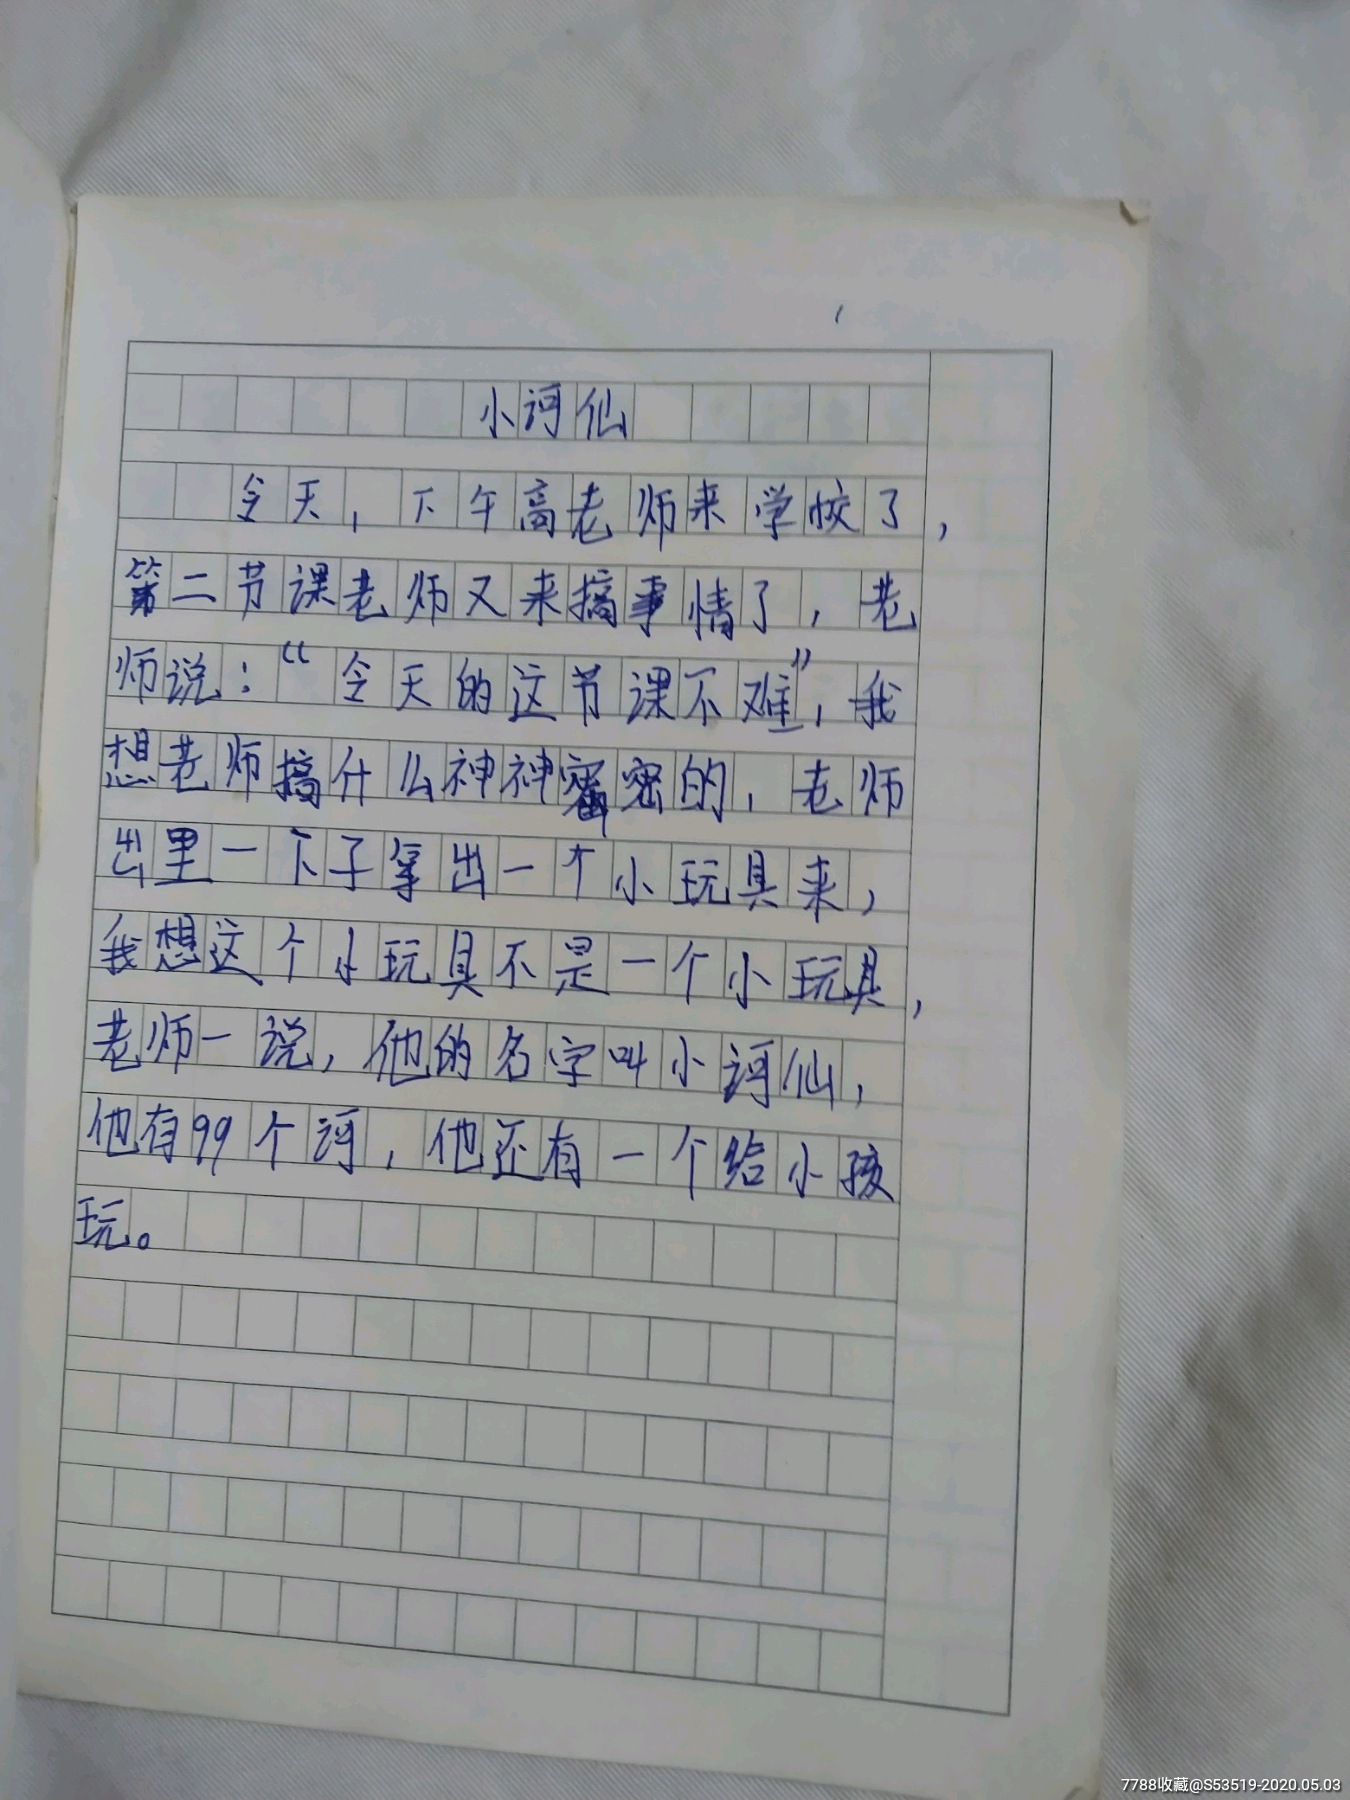 小诃仙
今天，下午高老师来学校了，
第二节课老师又来搞事情了，老
师说：“今天的这节课不难”，我
想老师搞什么神神密密的，老师
出里一下子拿出一个小玩具来，
我想这个小玩具不是一个小玩具，
老师一说，他的名字叫小诃仙，
他有99个诃，他还有一个给小孩
玩。
7788收藏@S53519-2020.05.03